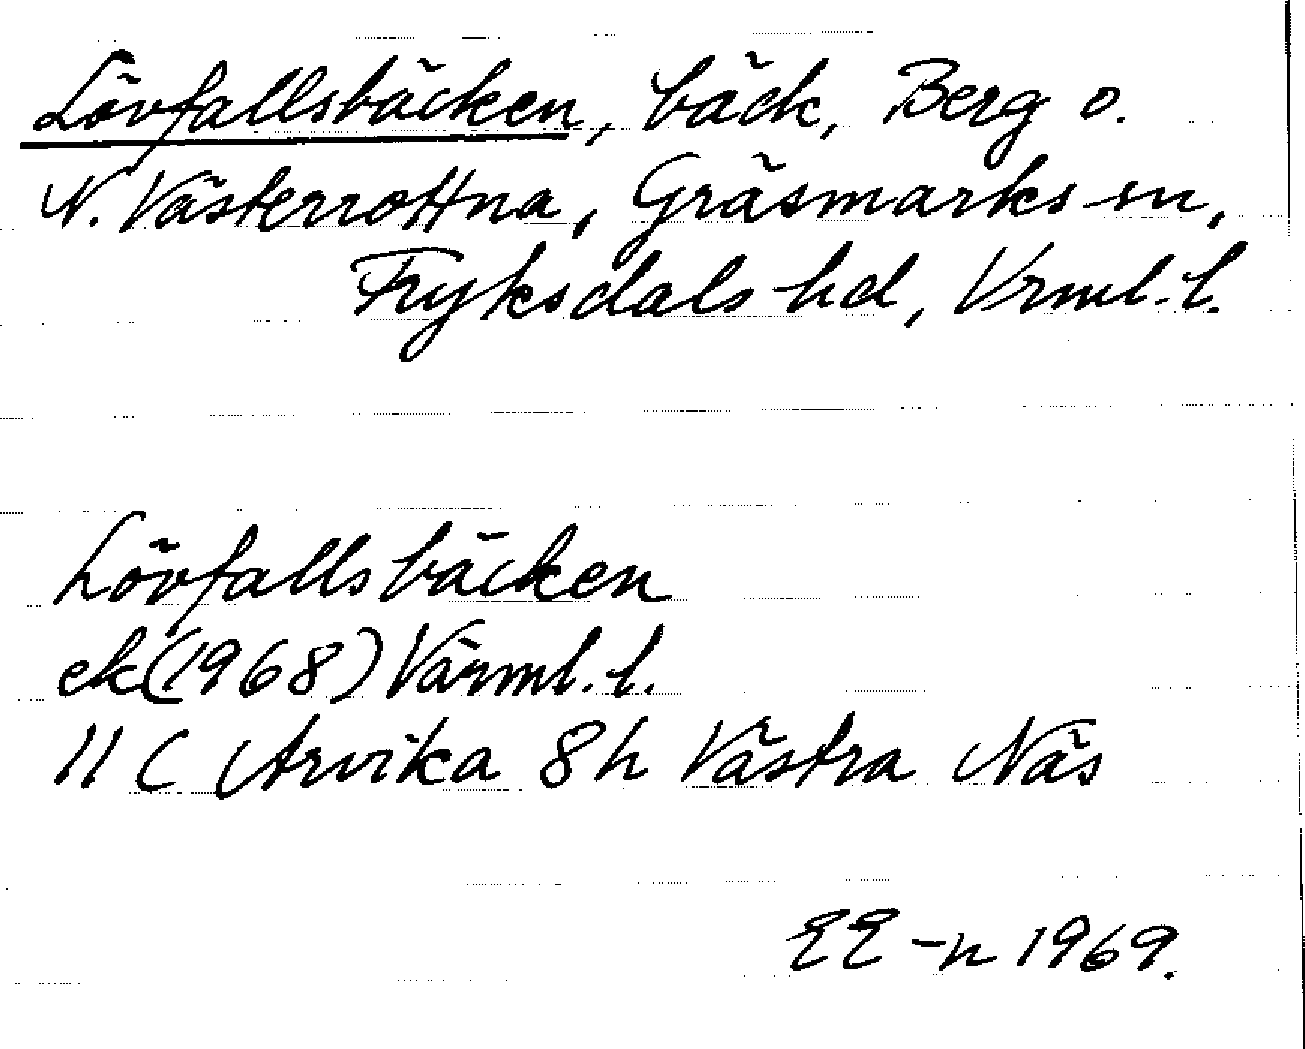 Lövfallsbäcken, bäck, Berg o.
N. Västerrottna, Gräsmarks sn,
Fryksdals hd, Vrml. l.
Lövfallsbäcken
ek (1968) Värml. l.
11 C Arvika 8h Västra Näs
EE-n 1969.